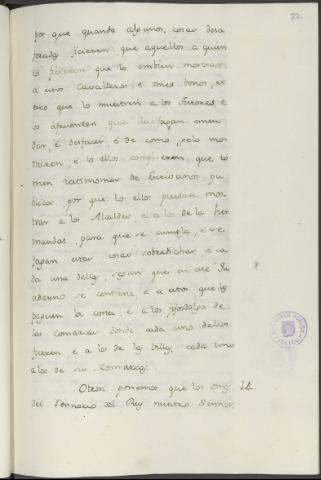 22.
por que quando algunos, cosas desa
foradas ficieren, que aquellos a quien
lo ficieren que lo embien mostrar
a estos Cavalleros é omes bonos, et
esto que lo muestren a los facedores, e
lo que lo fagan emen
dar, é desfacer, é de como gelo mos
traron, é lo ellos complieren, que to
men testimonio de Escrivanos pu
blicos por que lo ellos puedan mos
trar a los Alcaldes, é a los de la her
mandat, para que se cumpla, é se
fagan estas cosas sobredichas, é ca
da una dellas, segun que en este Qu
aderno se contiene é a estos que les
paguen la costa é a los fijosdalgo de
las comarcas donde cada uno dellos
fueren, é a los de las Villas, cada uno
a los de su comarca.
Otrosi ponemos que los 14.
del Sennorio del Rey nuestro Sennor,